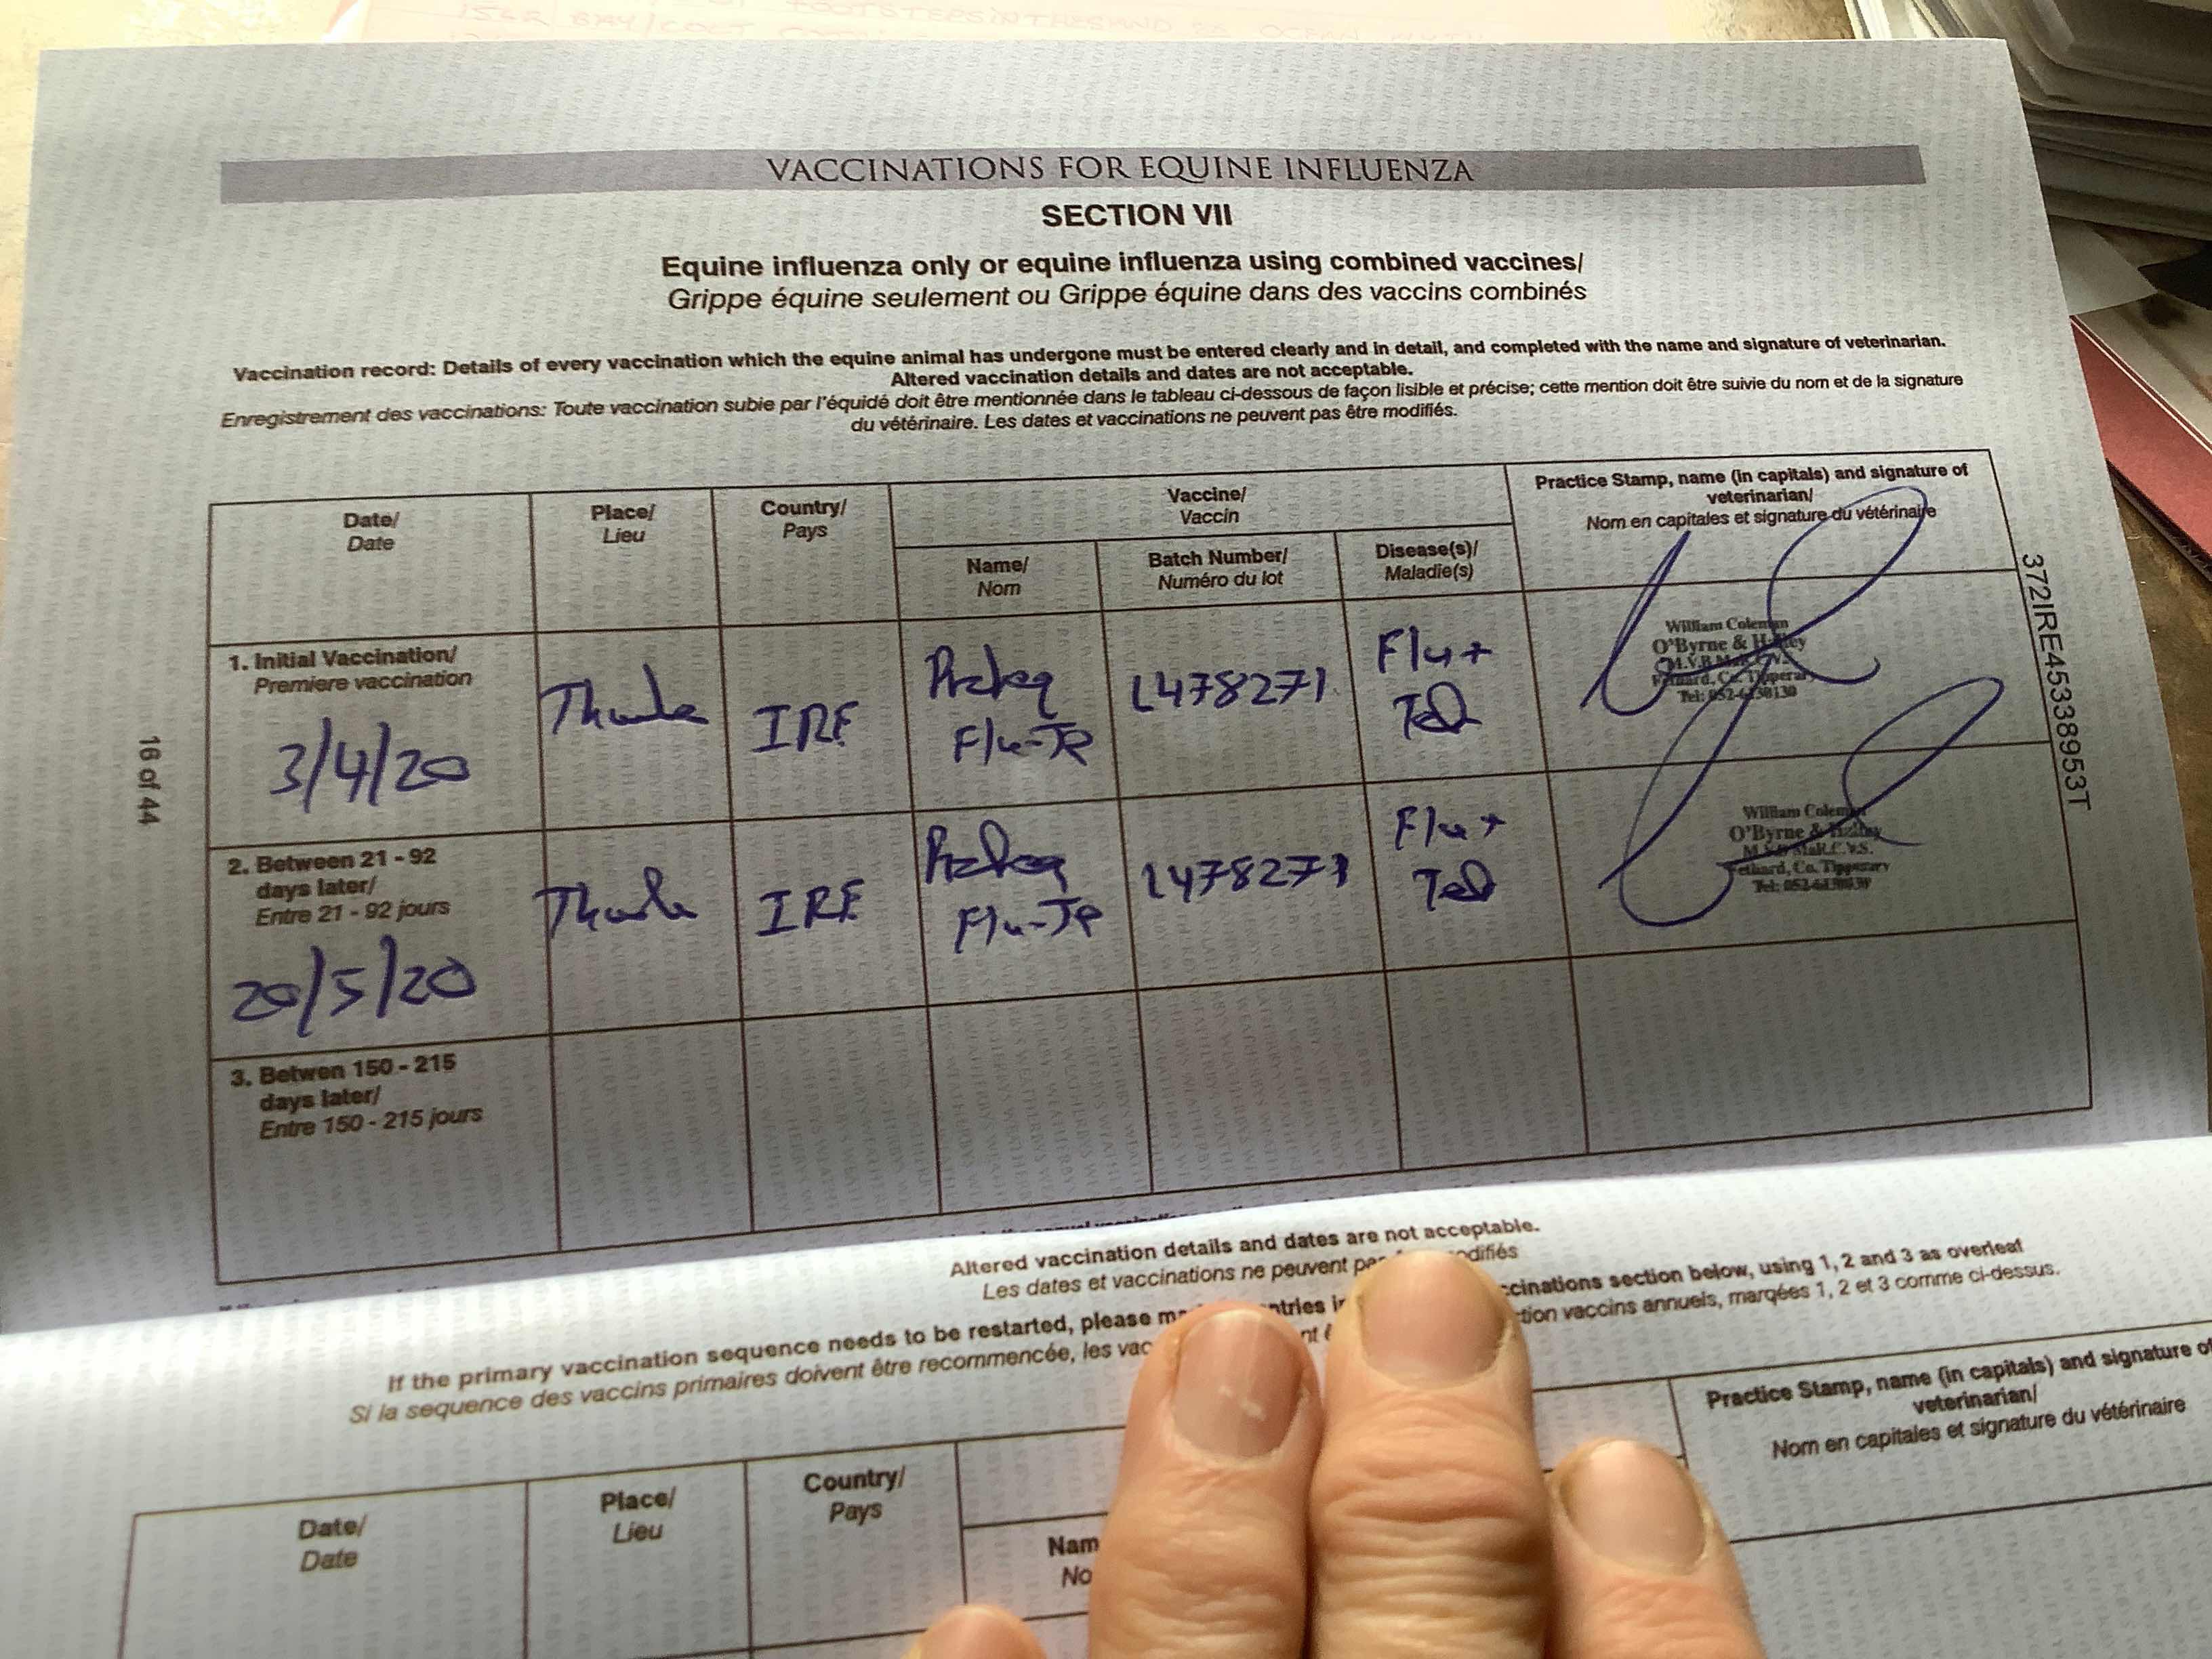 15GR BAY/COLT FOOTSTEPSINTHESAND
VACCINATIONS FOR EQUINE INFLUENZA
SECTION VII
Equine influenza only or equine influenza using combined vaccines/
Grippe équine seulement ou Grippe équine dans des vaccins combinés
Vaccination record: Details of every vaccination which the equine animal has undergone must be entered clearly and in detail, and completed with the name and signature of veterinarian.
Altered vaccination details and dates are not acceptable.
Enregistrement des vaccinations: Toute vaccination subie par l'équidé doit être mentionnée dans le tableau ci-dessous de façon lisible et précise; cette mention doit être suivie du nom et de la signature
du vétérinaire. Les dates et vaccinations ne peuvent pas être modifiés.
Date/
Date
Place/
Lieu
Country/
Pays
Vaccine/
Vaccin
Name/
Nom
Batch Number/
Numéro du lot
Disease(s)/
Maladie(s)
Practice Stamp, name (in capitals) and signature of
veterinarian/
Nom en capitales et signature du vétérinaire
1. Initial Vaccination/
Premiere vaccination
3/4/20
IRE
Flu-Te
L478271
Flu +
Tet
William Coleman
O'Byrne & Halley
M.V.B
Fethard, Co. Tipperary
Tel: 052-6130130
2. Between 21 - 92
days later/
Entre 21 - 92 jours
20/5/20
IRE
Flu-Te
L478271
Flu +
Tet
William Coleman
O'Byrne & Halley
Fethard, Co. Tipperary
Tel:
3. Betwen 150 - 215
days later/
Entre 150 - 215 jours
16 of 44
372IRE45338953T
Altered vaccination details and dates are not acceptable.
Les dates et vaccinations ne peuvent pas modifiés
If the primary vaccination sequence needs to be restarted, please entries ccinations section below, using 1, 2 and 3 as overleaf
Si la sequence des vaccins primaires doivent être recommencée, les vac tion vaccins annuels, marqées 1, 2 et 3 comme ci-dessus.
Date/
Date
Place/
Lieu
Country/
Pays
Nam
No
Practice Stamp, name (in capitals) and signature of
veterinarian/
Nom en capitales et signature du vétérinaire